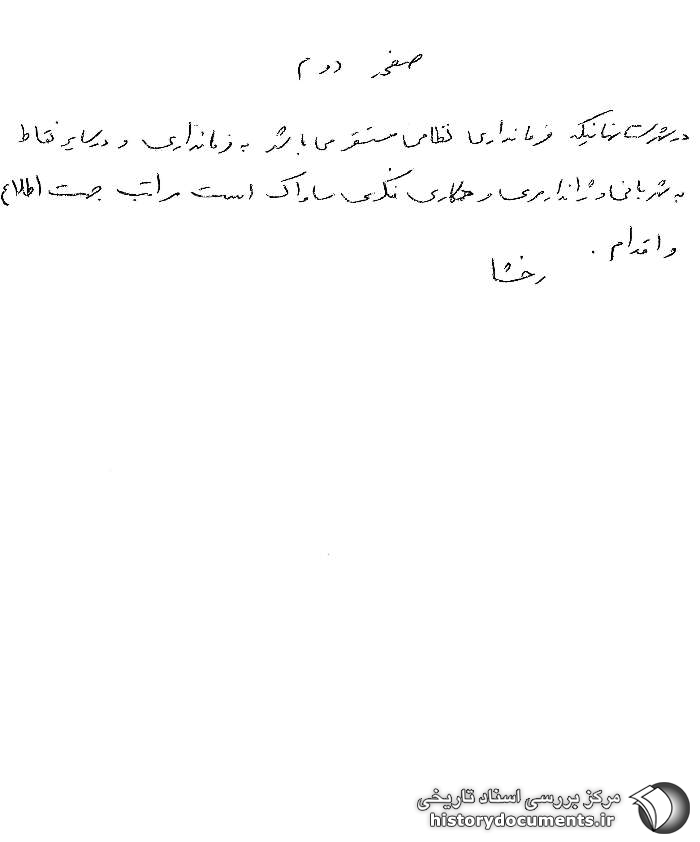 صفحه دوم
در شهرستانهائیکه فرمانداری نظامی مستقر می باشد به فرمانداری و در سایر نقاط
به شهربانی و ژاندارمری و همکاری فکری ساواک است مراتب جهت اطلاع
و اقدام .
رخشا
مرکز بررسی اسناد تاریخی
historydocuments.ir